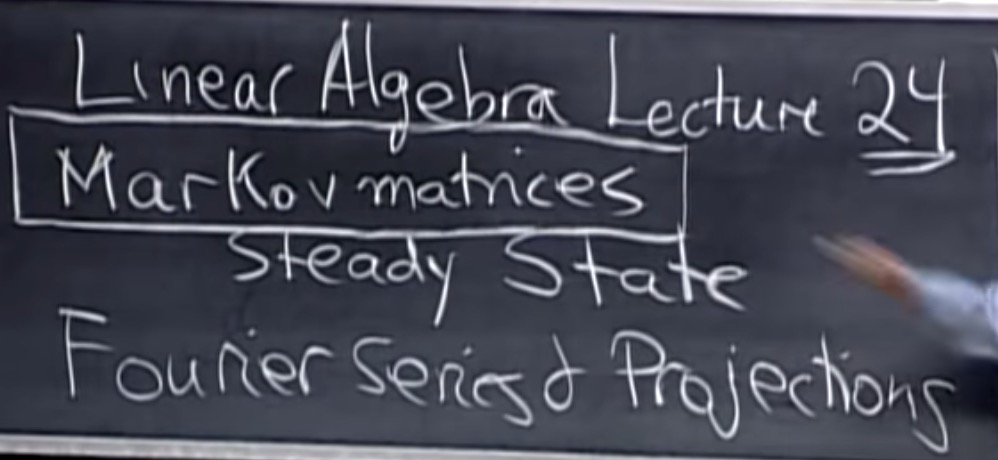 Linear Algebra Lecture 24
Markov matrices
Steady State
Fourier Series & Projections